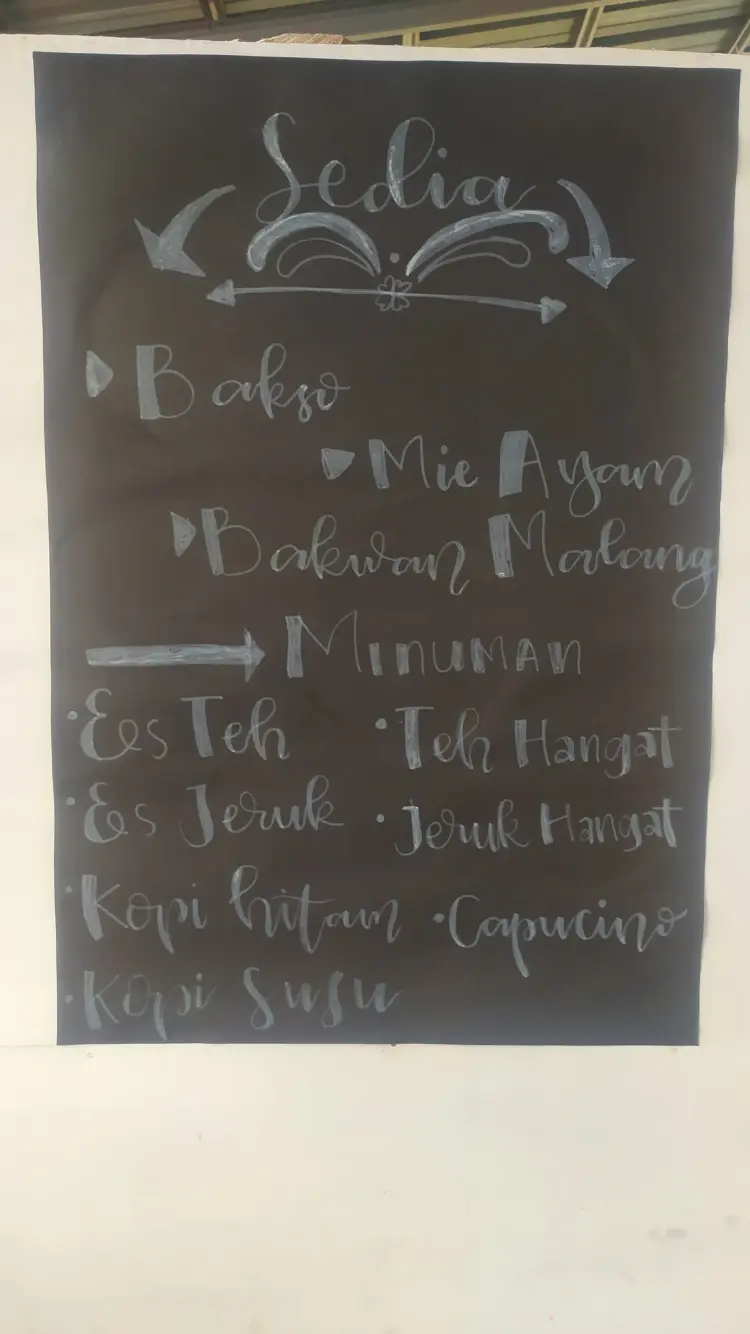 Sedia
Bakso
Mie Ayam
Bakwan Malang
Minuman
Es Teh
Teh Hangat
Es Jeruk
Jeruk Hangat
Kopi hitam
Capucino
Kopi Susu